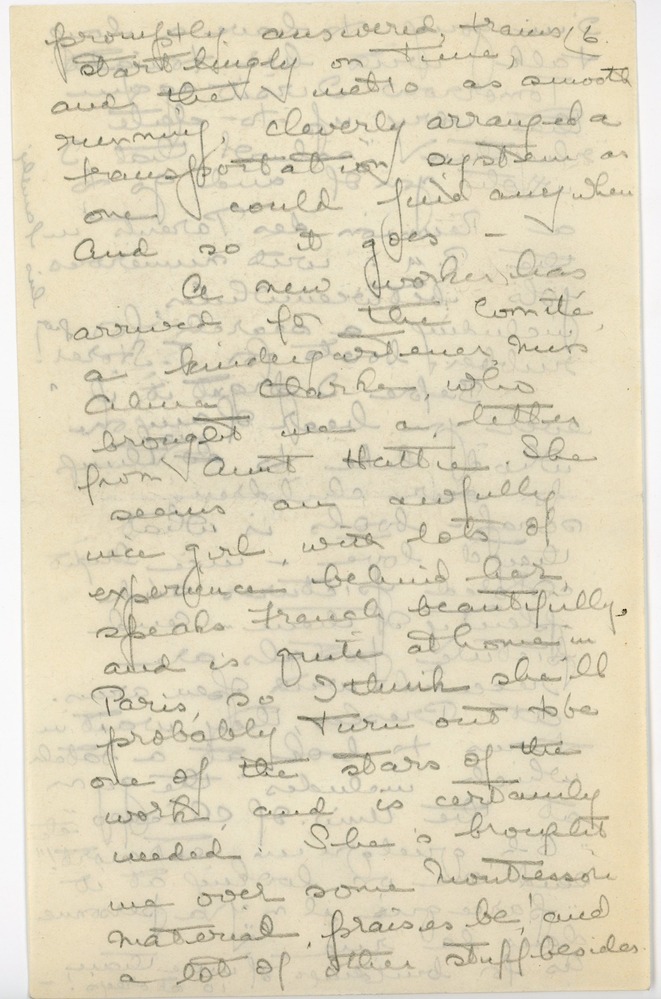 promptly answered, trains 6.
startlingly on time,
and the metro as smooth
running, cleverly arranged a
transportation system as
one could find anywhere
And so it goes –
A new worker has
arrived for the Comité,
a kindergartener, Miss
Alma Clarke, who
brought me a letter
from Aunt Hattie. She
seems an awfully
nice girl, with lots of
experience behind her,
speaks French beautifully,
and is quite at home in
Paris, so I think she'll
probably turn out to be
one of the stars of the
work, and is certainly
needed. She's brought
me over some Montessori
material, praises be, and
a lot of other stuff besides.